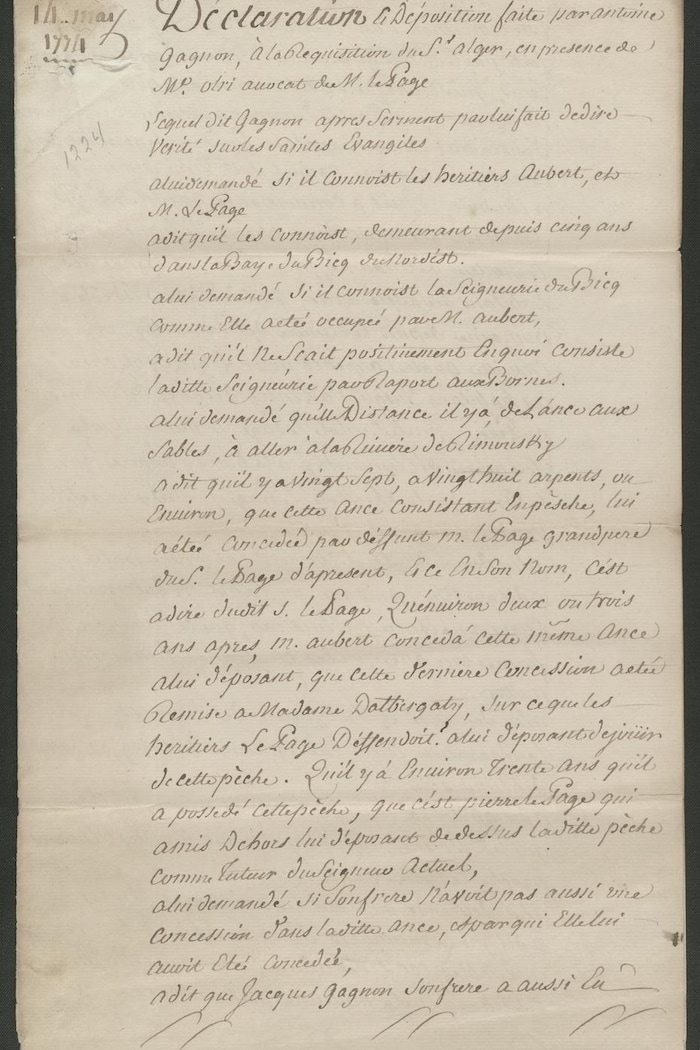 14. may
1774
Déclaration & Déposition faite par antoine
Gagnon, à la Requisition du S.r alger, en presence de
M.r olri avocat de M. le Page
Lequel dit Gagnon apres Serment par lui fait de dire
Verité sur les Saintes Evangiles
1224
a lui demandé si il connoist les heritiers Aubert, et
M. Le Page
a dit qu'il les connoist, demeurant depuis cinq ans
dans la Baye du Bicq du Nordést.
a lui demandé si il connoist la Seigneurie du Bicq
comme Elle a eteé occupeé par M. aubert,
a dit qu'il ne Scait positivement En quoi consiste
laditte Seigneurie par Raport aux Bornes.
a lui demandé qu'elle Distance il y á, de Lánce aux
Sables, à aller à la Riviere de Rimousky
a dit qu'il y a vingt Sept, a vingt huit arpents, ou
Environ, que cette Ance Consistant En pèsche, lui
a eteé Concedeé par déffunt m. le Page grand pere
du S. le Page d'apresent, & ce En Son Nom, C'est
a dire dudit S. le Page, Qu'environ deux ou trois
ans apres, m. aubert conceda cette même Ance
a lui déposant, que cette derniere Concession a eteé
Remise a Madame Dattergaty, sur ce que les
heritiers Le Page Déffendoit a lui déposant de jouiir
de cette pèche. Qu'il y á Environ Trente ans qu'il
a possedé cette pèche, que c'ést pierre le Page qui
a mis Dehors lui déposant de dessus laditte pèche
Comme Tuteur du Seigneur Actuel,
a lui demandé si Son frere N'avoit pas aussi une
Concession dans laditte ance, et par qui Elle lui
avoit Eteé Concedeé,
a dit que Jacques Gagnon Son frere a aussi Eu